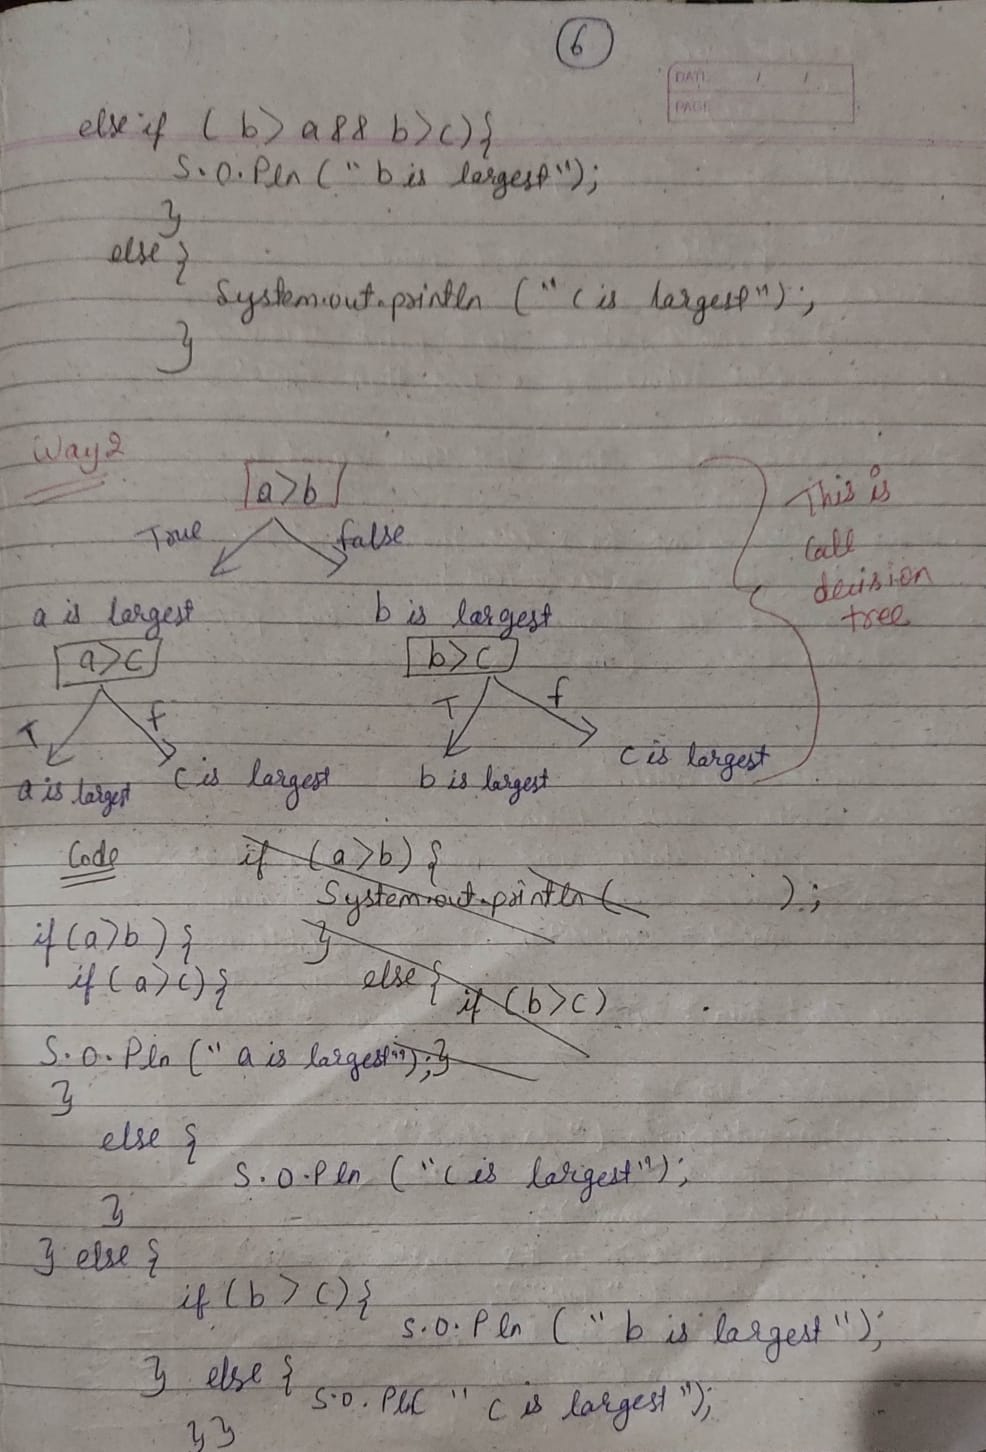 6
DATE / /
PAGE
else if ( b > a && b > c) {
S.O.Pln ( " b is largest");
}
else {
System.out.println (" c is largest") ;
}
Way 2
a>b
True false
This is
call
decision
tree
a is largest b is largest
a>c b>c
T f T f
a is largest c is largest b is largest c is largest
Code
if (a>b) {
System.out.println ( ) ;
}
else {
if (b>c)
if (a>b) {
if (a>c) {
S.O.Pln (" a is largest"); }
}
else {
S.O.Pln ( "c is largest");
}
} else {
if (b > c) {
S.O.Pln ( " b is largest");
} else {
S.O.Pl( " c is largest");
} }